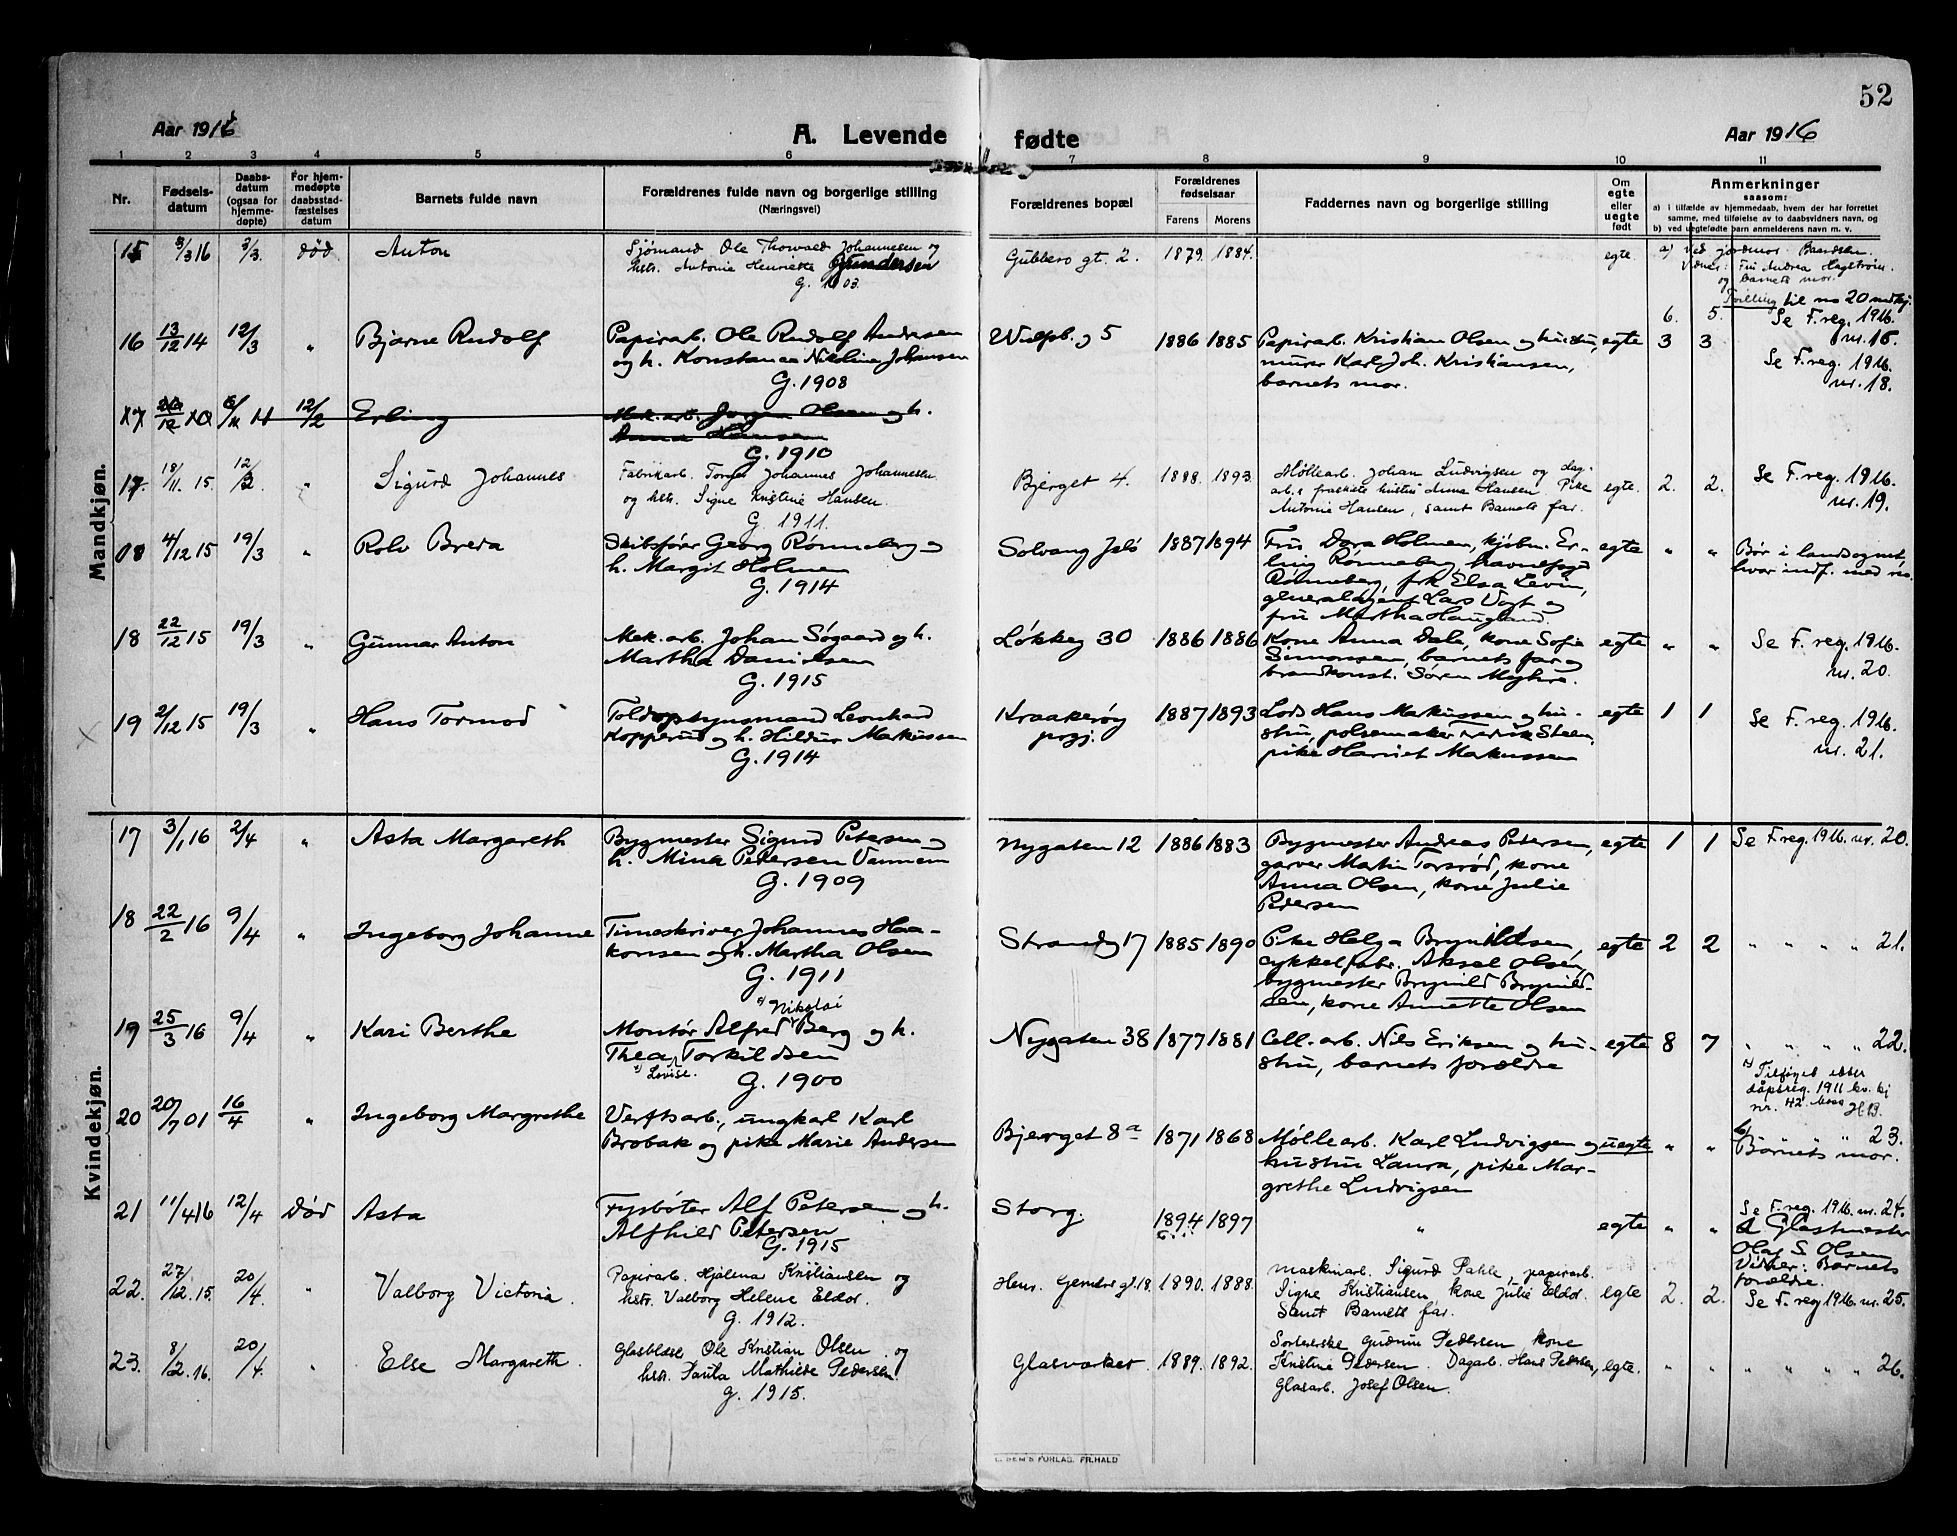 52
Aar 1916
A. Levende fødte
Aar 1916
1 2 3 4 5 6 7 8 9 10 11
Nr.
Fødsels-
datum
Daabs-
datum
(ogsaa for
hjemme-
døpte)
For hjem-
medøpte
daabsstad-
fæstelses
datum
Barnets fulde navn
Forældrenes fulde navn og borgerlige stilling
(Næringsvei)
Forældrenes bopæl
Forældrenes
fødselsaar
Farens Morens
Faddernes navn og borgerlige stilling
Om
egte
eller
uegte
født
Anmerkninger
saasom:
a) i tilfælde av hjemmedaab, hvem der har forrettet
samme, med tilføielse av to daabsvidners navn, og
b) ved uegtefødte barn anmelderens navn m. v.
Mandkjøn.
15 8/3 16 8/3. død Anton
Sjømand Ole Thorvald Johannesen og
hstr. Antonie Henriette Gundersen
G. 1903
Gubbero gt. 2. 1879. 1884. egte.
a) Ved jordmor Baardsen.
Vidner: Fru Andrea Hagstrøm.
og barnets mor.
Tvilling til no 20 medkj.
6. 5. Se F. reg. 1916.
nr. 15.
16 13/12 14 12/3 " Bjarne Rudolf
Papirarb. Ole Rudolf Andersen
og h. Konstance Nikoline Johansen
G. 1908
1886 1885
Papirarb. Kristian Olsen og hustru,
murer Karl Joh. Kristiansen,
barnets mor.
egte 3 3
Se F. reg. 1916.
nr. 18.
17 12/2 Erling
Mek. arb. Jørgen Olsen og h.
Anna Hansen
G. 1910
17. 18/11. 15. 12/3. " Sigurd Johannes
Fabrikarb. Torger Johannes Johannesen
og hstr. Signe Kristine Hansen.
G. 1911.
Bjerget 4. 1888. 1893.
Møllearb. Johan Ludvigsen og dag-
arb.s fraskilte hustru Anna Hansen. Pike
Antonie Hansen, samt Barnets far.
egte. 2. 2.
Se F. reg. 1916.
nr. 19.
08 4/12 15 19/3 " Rolv Breda
Skibsfører Georg Rønneberg og
h. Margit Holmen
G. 1914
Solvang Jelø 1887 1894
Fru Dora Holmen, kjøbm. Er-
ling Rønneberg, havnefogd
Rønneberg, frk Elsa Levin,
generalagent Lars Vogt og
fru Martha Haugland.
egte " "
Bør i landsognet,
hvor indf. med no.
18 22/12 15 19/3 " Gunnar Anton
Mek. arb. Johan Søgaard og h.
Martha Danielsen
G. 1915
Løkkeg 30 1886 1886
Kone Anna Dale, kone Sofie
Simonsen, barnets far og
brandkonst. Søren Myhre.
egte " "
Se F. reg. 1916.
nr. 20.
x 19 2/12 15 19/3 " Hans Tormod
Toldopsynsmand Leonhard
Kopperud og h. Hildur Markussen
G. 1914
Kraakerøy
prgj. 1887 1893
Lods Hans Markussen og hu-
stru, pølsemaker Fredrik Steen,
pike Harriet Markussen
egte 1 1
Se F. reg. 1916.
nr. 21.
Kvindekjøn.
17 3/1 16 2/4 " Asta Margareth
Bygmester Sigurd Petersen og
h. Mina Petersen Vannem
G. 1909
Nygaten 12 1886 1883
Bygmester Andreas Petersen,
garver Matin Torsrød, kone
Anna Olsen, kone Julie
Pedersen
egte 1 1 Se F. reg. 1916. nr. 20.
18 22/2 16 9/4 " Ingeborg Johanne
Timeskriver Johannes Haa-
konsen og h. Martha Olsen
G. 1911
Strandg 17 1885 1890
Pike Helga Brynildsen,
cykkelfabr. Aksel Olsen,
bygmester Brynild Brynild-
sen, kone Annette Olsen
egte 2 2 " " " " 21.
19 25/3 16 9/4 " Kari Berthe
x) Nikolai
Montør Alfred Berg og h.
Thea Torkildsen
x) Lovise.
G. 1900
Nygaten 38 1877 1881
Cell. arb. Nils Eriksen og hu-
stru, barnets forældre
egte 8 7 " " " " 22.
x) Tilføyet etter
dåpsreg. 1911 kv. kj
nr. 42. Moss
20 20/7 01 16/4 " Ingeborg Margrethe
Verftsarb., ungkar Karl
Brobak og pike Marie Andersen
Bjerget 8a 1871 1868
Møllearb. Karl Ludvigsen og
hustru Laura, pike Mar-
grethe Ludvigsen
uegte " " " 23.
b) Barnets mor.
21 11/4 16 12/4 Død Asta
Fyrbøter Alf Petersen og h.
Alfhild Petersen
G. 1915
Storg. 1894 1897 " egte " "
Se F. reg. 1916. nr. 24.
a Glasmester
Olaf S. Olsen
Vidner: Barnets
forældre.
22. 27/12. 15. 20/4. " Valborg Victoria.
Papirarb. Hjalmar Kristiansen og
hstr. Valborg Helene Eldor.
G. 1912.
Henr. Gerners gt. 18. 1890. 1888.
Maskinarb. Sigurd Dahle, papirarb.
Signe Kristiansen, kone Julie Eldor.
Samt Barnets far.
egte 2. 2. Se F. reg 1916. nr. 25.
23. 8/2. 16. 20/4. " Else Margareth.
Glasblæser Ole Kristian Olsen og
hstr. Paula Mathilde Pedersen.
G. 1915.
Glasverket 1889. 1892.
Sorterske Gudrun Pedersen kone
Kristine Pedersen. Dagarb. Hans Pedersen,
Glasarb. Josef Olsen.
egte. " " " " " " 26.
FORLAG. FR.HALD